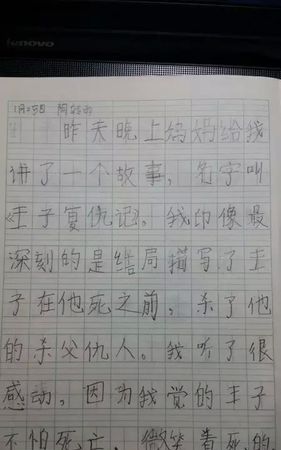 lenovo
1月25日
昨天晚上妈妈给我
讲了一个故事，名字叫
《王子复仇记》。我印像最
深刻的是结局描写了王
子在他死之前，杀了他
的杀父仇人。我听了很
感动，因为我觉的王子
不怕死亡，微笑着死的